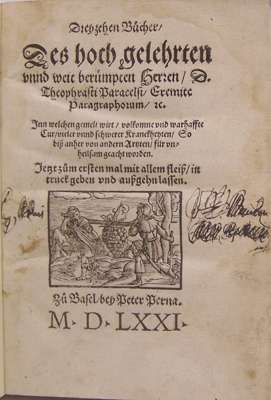 Dreyzehen Bücher/
Des hoch gelehrten
vnnd weit berümpten Herren/ D.
Theophrasti Paracelsi/ Eremite
Paragraphorum/ ꝛc.
Inn welchen gemelt wirt/ volkomne vnd warhaffte
Cur/ vieler vnnd schwerer Kranckheyten/ So
biß anher von andern Artzten/ für vn-
heilsam geacht worden.
Jetzt zům ersten mal mit allem fleiß/ in
truck geben vnd außgehn lassen.
Zů Basel/ bey Peter Perna.
M. D. LXXI.